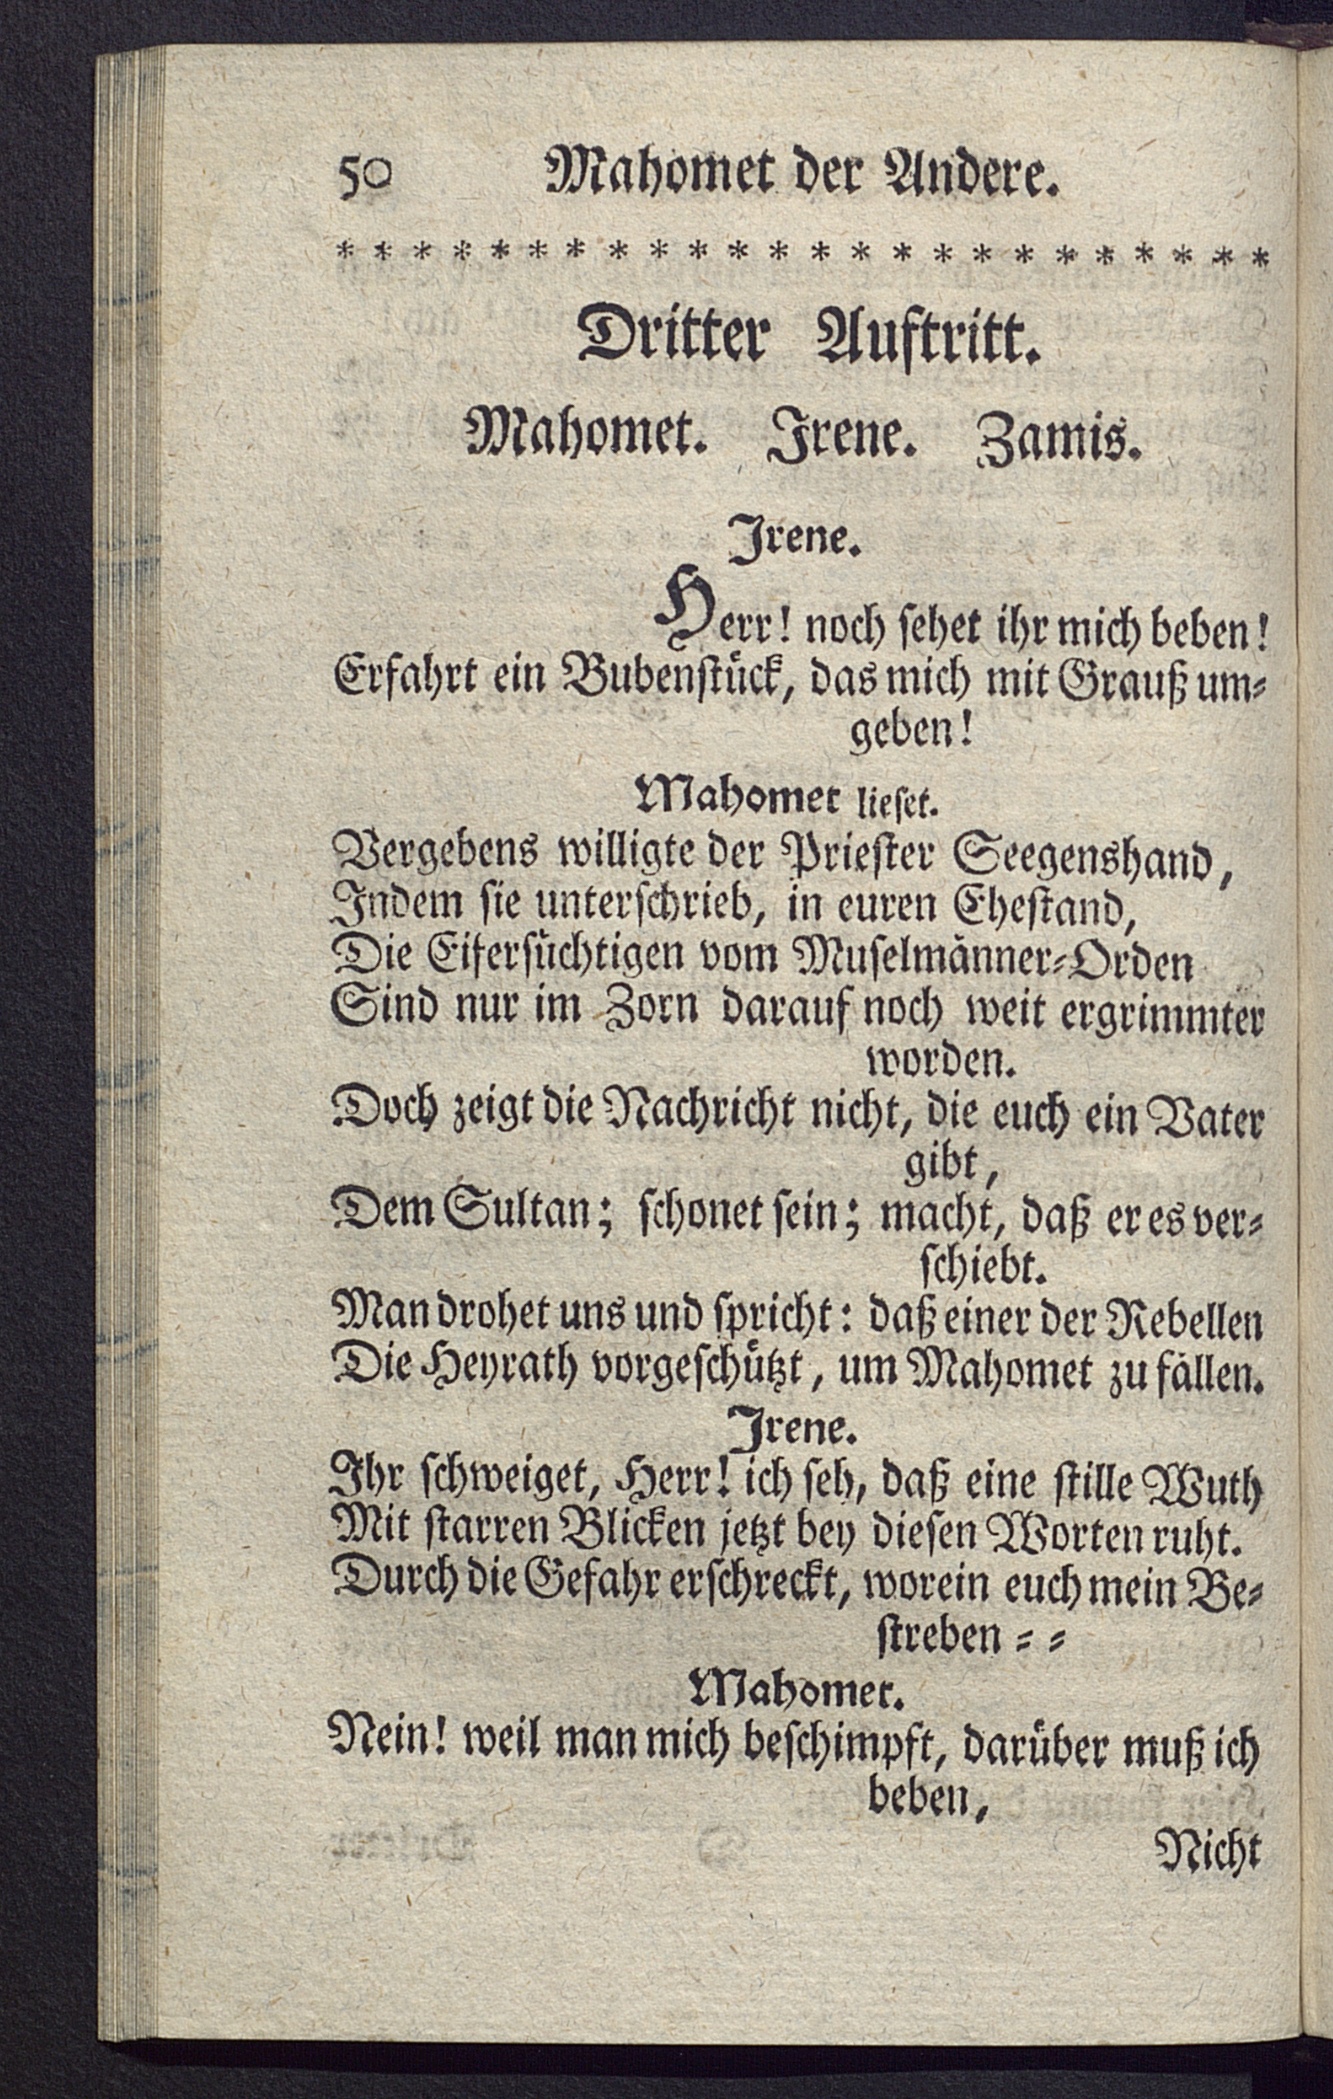 50 Mahomet der Andere.
* * * * * * * * * * * * * * * * * * * * * * * *
Dritter Auftritt.
Mahomet. Irene. Zamis.
Irene.
Herr! noch sehet ihr mich beben!
Erfahrt ein Bubenstück, das mich mit Grauß um-
geben!
Mahomet lieset.
Vergebens willigte der Priester Seegenshand,
Indem sie unterschrieb, in euren Ehestand,
Die Eifersüchtigen vom Muselmänner-Orden
Sind nur im Zorn darauf noch weit ergrimmter
worden.
Doch zeigt die Nachricht nicht, die euch ein Vater
gibt,
Dem Sultan; schonet sein; macht, daß er es ver-
schiebt.
Man drohet uns und spricht: daß einer der Rebellen
Die Heyrath vorgeschützt, um Mahomet zu fällen.
Irene.
Ihr schweiget, Herr! ich seh, daß eine stille Wuth
Mit starren Blicken jetzt bey diesen Worten ruht.
Durch die Gefahr erschreckt, worein euch mein Be-
streben - -
Mahomet.
Nein! weil man mich beschimpft, darüber muß ich
beben,
Nicht